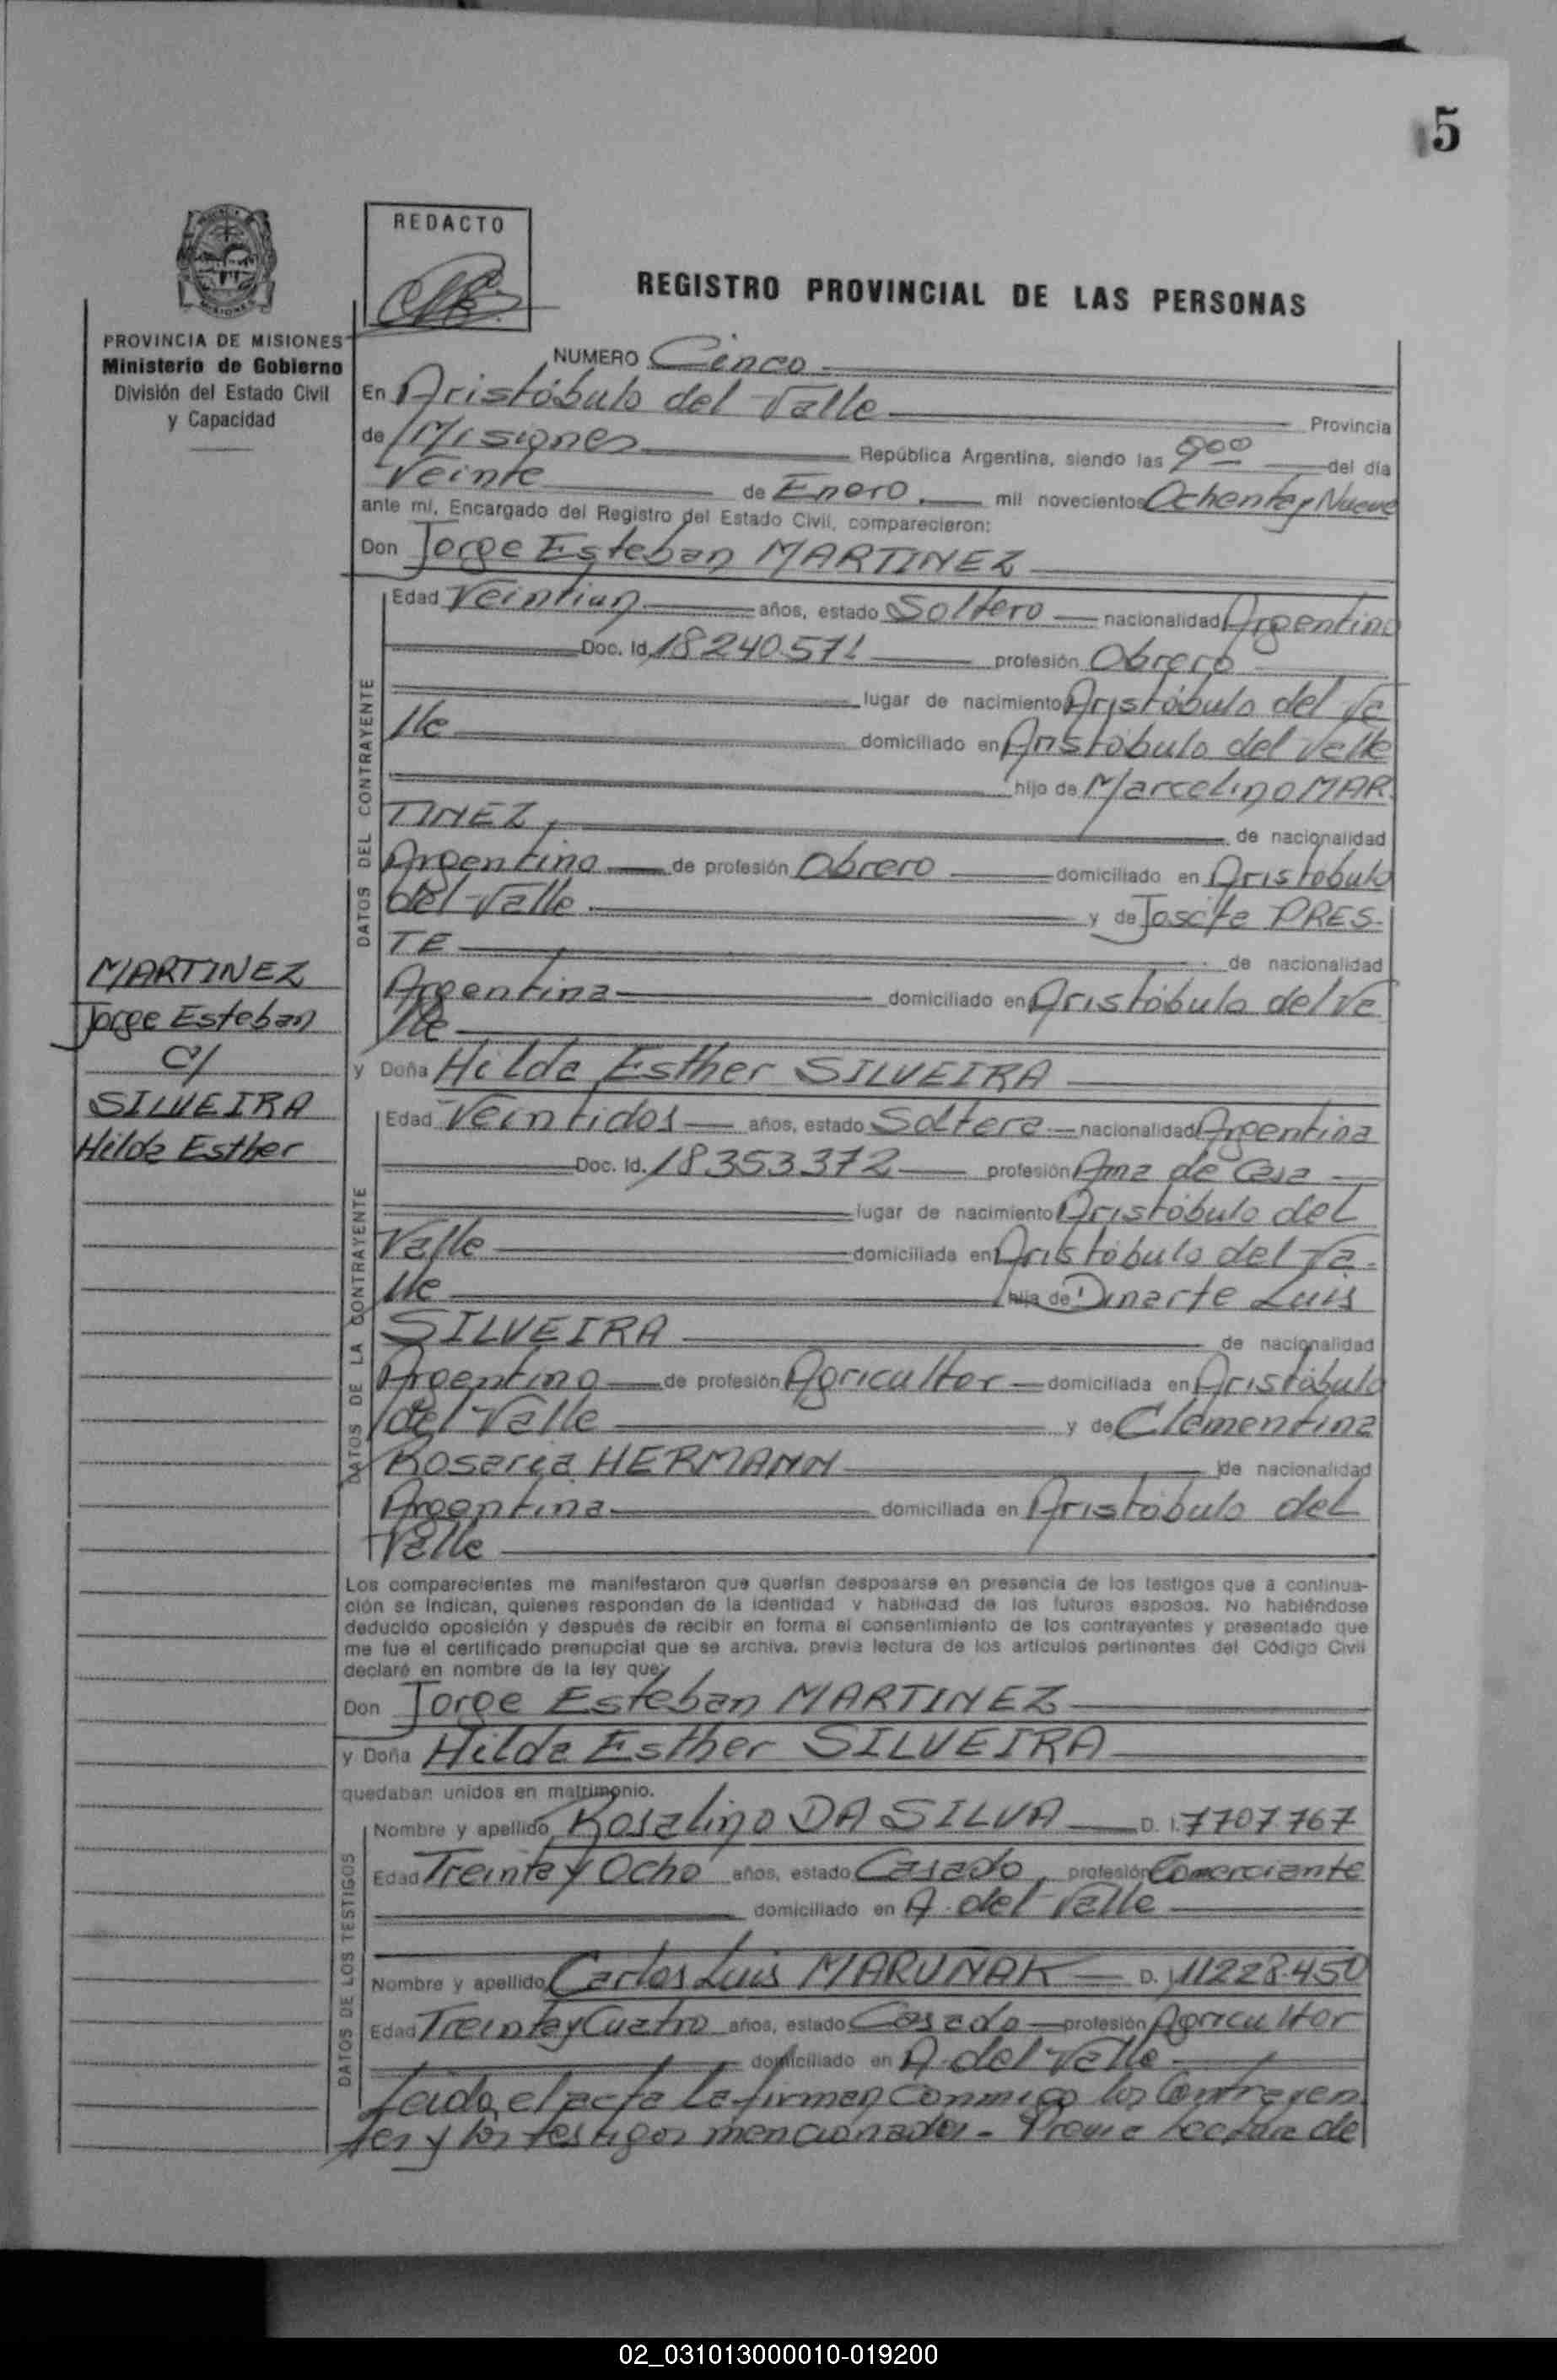 5
REDACTO
REGISTRO PROVINCIAL DE LAS PERSONAS
PROVINCIA DE MISIONES
Ministerio de Gobierno
División del Estado Civil
y Capacidad
NUMERO Cinco
En Aristóbulo del Valle Provincia
de Misiones República Argentina, siendo las 900 del día
Veinte de Enero mil novecientos Ochenta y Nueve
ante mí, Encargado del Registro del Estado Civil, comparecieron:
Don Jorge Esteban MARTINEZ
DATOS DEL CONTRAYENTE
Edad Veintiun años, estado Soltero nacionalidad Argentino
Doc. Id. 18240.571 profesión Obrero
lugar de nacimiento Aristóbulo del Va
lle domiciliado en Aristóbulo del Valle
hijo de Marcelino MAR
TINEZ, de nacionalidad
Argentino de profesión Obrero domiciliado en Aristóbulo
del Valle y de PRES-
TE de nacionalidad
Argentina domiciliado en Aristóbulo del Va
lle
MARTINEZ
Jorge Esteban
C/
SILVEIRA
Hilda Esther
y Doña Hilda Esther SILVEIRA
DATOS DE LA CONTRAYENTE
Edad Veintidos años, estado Soltera nacionalidad Argentina
Doc. Id. 18353372 profesión Ama de Casa
lugar de nacimiento Aristóbulo del
Valle domiciliada en Aristóbulo del Va-
lle hija de Dinarte Luis
SILVEIRA de nacionalidad
Argentino de profesión Agricultor domiciliada en Aristóbulo
del Valle y de Clementina
Rosaria HERMANN de nacionalidad
Argentina domiciliada en Aristóbulo del
Valle
Los comparecientes me manifestaron que querían desposarse en presencia de los testigos que a continua-
ción se indican, quienes responden de la identidad y habilidad de los futuros esposos. No habiéndose
deducido oposición y después de recibir en forma el consentimiento de los contrayentes y presentado que
me fue el certificado prenupcial que se archiva, previa lectura de los artículos pertinentes del Código Civil
declaré en nombre de la ley que:
Don Jorge Esteban MARTINEZ
y Doña Hilda Esther SILVEIRA
quedaban unidos en matrimonio.
DATOS DE LOS TESTIGOS
Nombre y apellido Rosalino DA SILVA D. I. 7707.767
Edad Treinta y Ocho años, estado Casado, profesión Comerciante
domiciliado en A. del Valle
Nombre y apellido Carlos Luis MARUÑAK D. I. 11228.450
Edad Treinta y Cuatro años, estado Casado profesión Agricultor
domiciliado en A. del Valle
Leida el acta la firman conmigo los Contrayen
tes y los testigos mencionados.- Previa lectura de
02_031013000010-019200